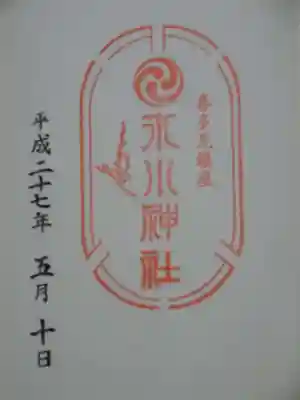 喜多見鎮座
氷川神社
平成二十七年 五月 十日